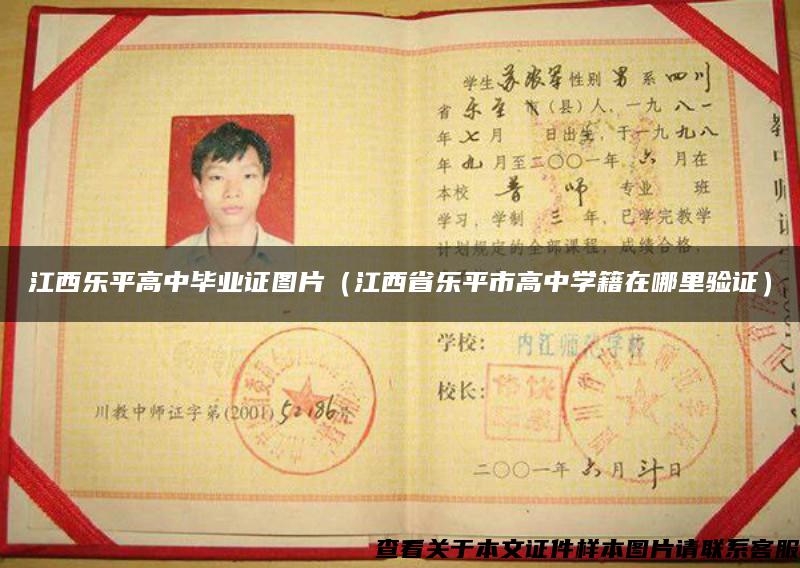 学生 苏 性别 男 系 四川
省 乐至 市(县)人,一九 八一
年 七 月 日出生,于一九 九八
年 九 月至二〇〇一年 六 月在
本校 普 师 专业 班
学习,学制 三 年,已学完教学
计划规定的全部课程,成绩合格,
江西乐平高中毕业证图片(江西省乐平市高中学籍在哪里验证)
学校: 内江师范学校
校长:
川教中师证字第(2001)52186号
二〇〇一年 六 月 日
查看关于本文证件样本图片请联系客服